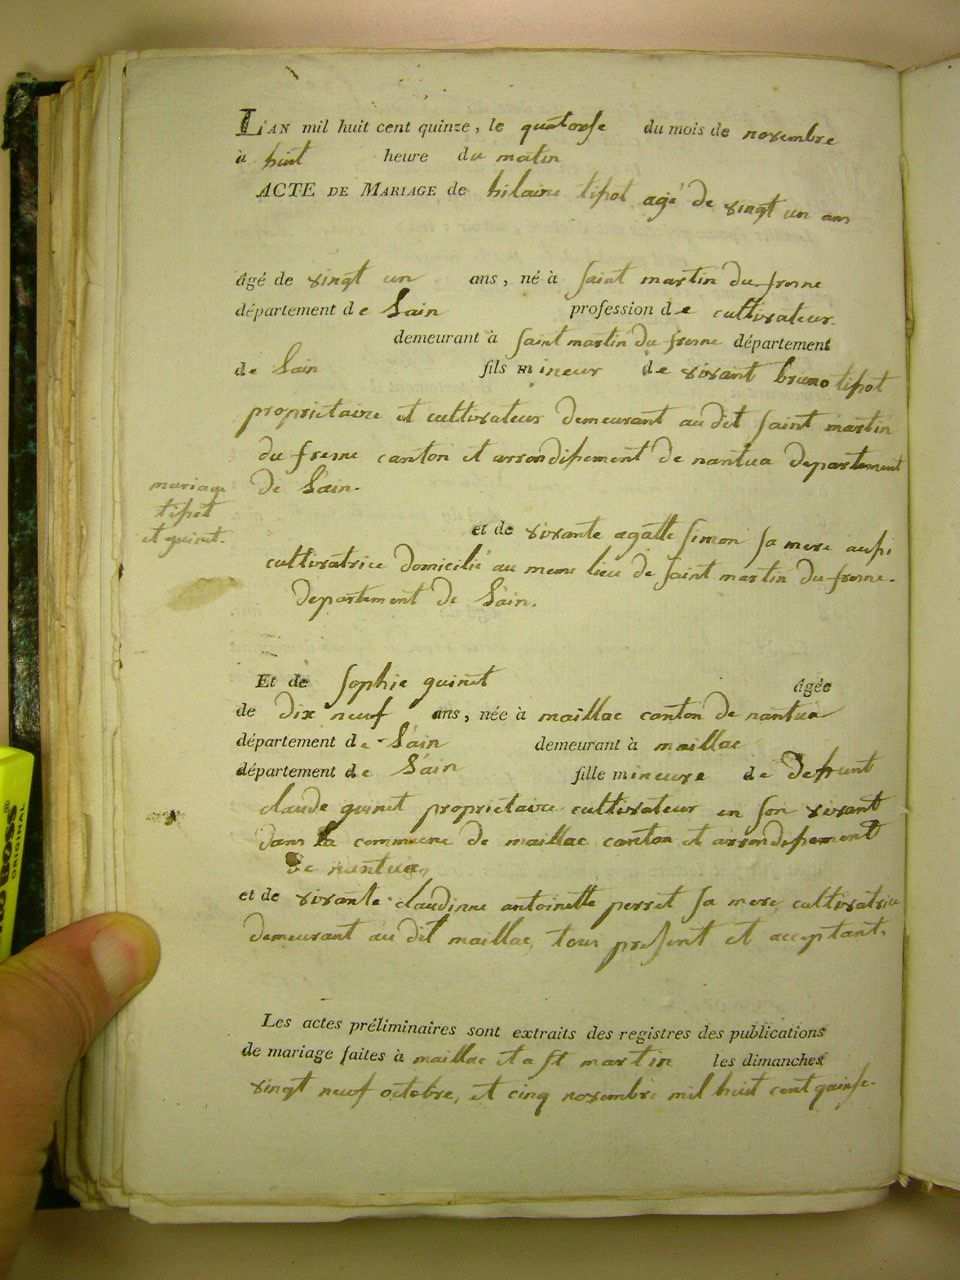 L'AN mil huit cent quinze, le quatorse du mois de novembre
à huit heure du matin
ACTE DE MARIAGE de hilaire tipot agé de vingt un ans
âgé de vingt un ans, né à saint martin du fresne
département de Lain profession de cultivateur.
demeurant à saint martin du fresne département
de Lain fils mineur de vivant bruno tipot
proprietaire et cultivateur demeurant au dit saint martin
du fresne canton et arrondissement de nantua departement
de Lain.
mariage
tipot
et guinet.
et de vivante agatte simon sa mere aussi
cultivatrice domicilié au meme lieu de saint martin du fresne.
departement de Lain.
Et de sophie guinet âgée
de dix neuf ans, née à maillac canton de nantua
département de Lain demeurant à maillac
département de Lain fille mineure de defunt
claude guinet proprietaire cultivateur en son vivant
dans la commune de maillac canton et arrondissement
de nantua,
et de vivante claudinne antoinette perret sa mere, cultivatrice
demeurant au dit maillac, tous present et acceptant.
Les actes préliminaires sont extraits des registres des publications
de mariage faites à maillac et a st martin les dimanches
vingt neuf octobre, et cinq novembre mil huit cent quinse.
BOSS®
ORIGINAL